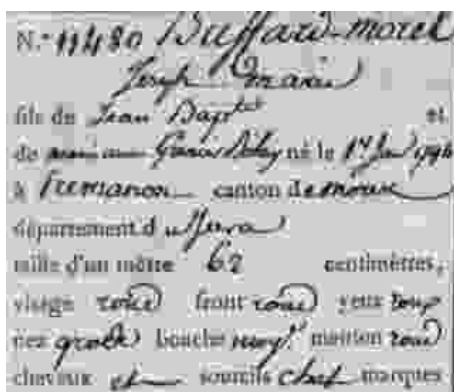 N.º 11480 Buffard-morel
Joseph marie
fils de Jean Bapt.te et
de né le 1er 1796
à Premanon canton de morez
département du Jura
taille d'un mètre 62 centimètres,
visage rond front rond yeux roux
nez gros bouche moy. menton rond
cheveux et sourcils marques